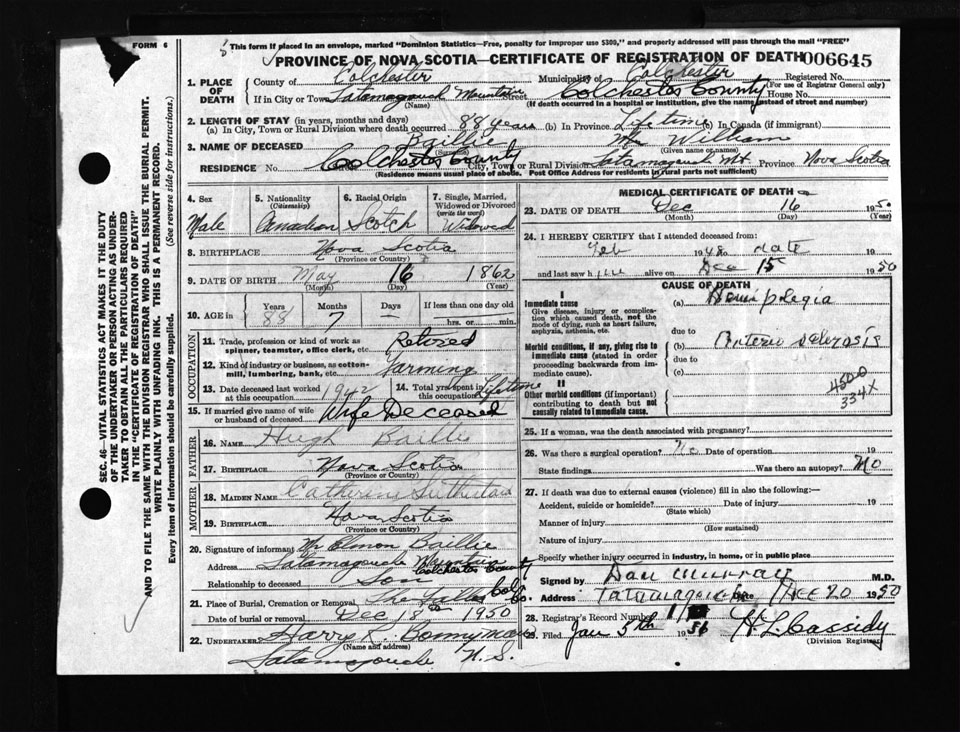 FORM 6
This form if placed in an envelope, marked "Dominion Statistics—Free, penalty for improper use $300," and properly addressed will pass through the mail "FREE"
PROVINCE OF NOVA SCOTIA—CERTIFICATE OF REGISTRATION OF DEATH 006645
SEC. 46—VITAL STATISTICS ACT MAKES IT THE DUTY
OF THE UNDERTAKER OR PERSON ACTING AS UNDER-
TAKER TO OBTAIN ALL THE PARTICULARS REQUIRED
IN THE "CERTIFICATE OF REGISTRATION OF DEATH"
AND TO FILE THE SAME WITH THE DIVISION REGISTRAR WHO SHALL ISSUE THE BURIAL PERMIT.
WRITE PLAINLY WITH UNFADING INK. THIS IS A PERMANENT RECORD.
Every item of information should be carefully supplied. (See reverse side for instructions.)
1. PLACE OF DEATH
County of Colchester Municipality of Colchester Registered No.
(For use of Registrar General only)
If in City or Town Tatamagouch Mountain Street Colchester County House No.
(Name) (If death occurred in a hospital or institution, give the name instead of street and number)
2. LENGTH OF STAY (in years, months and days)
(a) In City, Town or Rural Division where death occurred 88 years (b) In Province Life time (c) In Canada (if immigrant)
3. NAME OF DECEASED Baillie Mr William
(Surname) (Given name or names)
RESIDENCE No. Colchester County Street City, Town or Rural Division Tatamagouch Mt Province Nova Scotia
(Residence means usual place of abode. Post Office Address for residents in rural parts not sufficient)
4. Sex Male
5. Nationality (Citizenship) Canadian
6. Racial Origin Scotch
7. Single, Married, Widowed or Divorced (write the word) Widowed
8. BIRTHPLACE Nova Scotia
(Province or Country)
9. DATE OF BIRTH May 16 1862
(Month) (Day) (Year)
10. AGE in Years 88 Months 7 Days - If less than one day old
hrs. or min.
OCCUPATION
11. Trade, profession or kind of work as spinner, teamster, office clerk, etc. Retired
12. Kind of industry or business, as cotton-mill, lumbering, bank, etc. Farming
13. Date deceased last worked at this occupation 1942
14. Total yrs. spent in this occupation Lifetime
15. If married give name of wife or husband of deceased Wife Deceased
FATHER
16. NAME Hugh Baillie
17. BIRTHPLACE Nova Scotia
(Province or Country)
MOTHER
18. MAIDEN NAME Catherine Sutherland
19. BIRTHPLACE Nova Scotia
(Province or Country)
20. Signature of informant Mr Baillie
Address Tatamagouche Mountain
Colchester County
Relationship to deceased Son
21. Place of Burial, Cremation or Removal The Falls Col. Co.
Date of burial or removal Dec 18th 1950
22. UNDERTAKER Harry K. Bonnyman
(Name and address)
Tatamagouche N.S.
MEDICAL CERTIFICATE OF DEATH
23. DATE OF DEATH Dec 16 1950
(Month) (Day) (Year)
24. I HEREBY CERTIFY that I attended deceased from:
Feb 1948 to date 19
and last saw him alive on Dec 15 1950
CAUSE OF DEATH
I
Immediate cause
Give disease, injury or complication which caused death, not the mode of dying, such as heart failure, asphyxia, asthenia, etc.
(a) Hemiplegia
due to
Morbid conditions, if any, giving rise to immediate cause (stated in order proceeding backwards from immediate cause).
(b) Arterio sclerosis
due to
(c)
II
Other morbid conditions (if important) contributing to death but not causally related to immediate cause.
450-0
334X
25. If a woman, was the death associated with pregnancy?
26. Was there a surgical operation? No Date of operation 19
State findings Was there an autopsy? No
27. If death was due to external causes (violence) fill in also the following:—
Accident, suicide or homicide? Date of injury 19
(State which)
Manner of injury
(How sustained)
Nature of injury
Specify whether injury occurred in industry, in home, or in public place
Signed by Dan Murray M.D.
Address Tatamagouche Date Dec 20 1950
28. Registrar's Record Number
29. Filed Jan 5th 1951 H L Cassidy
(Division Registrar)